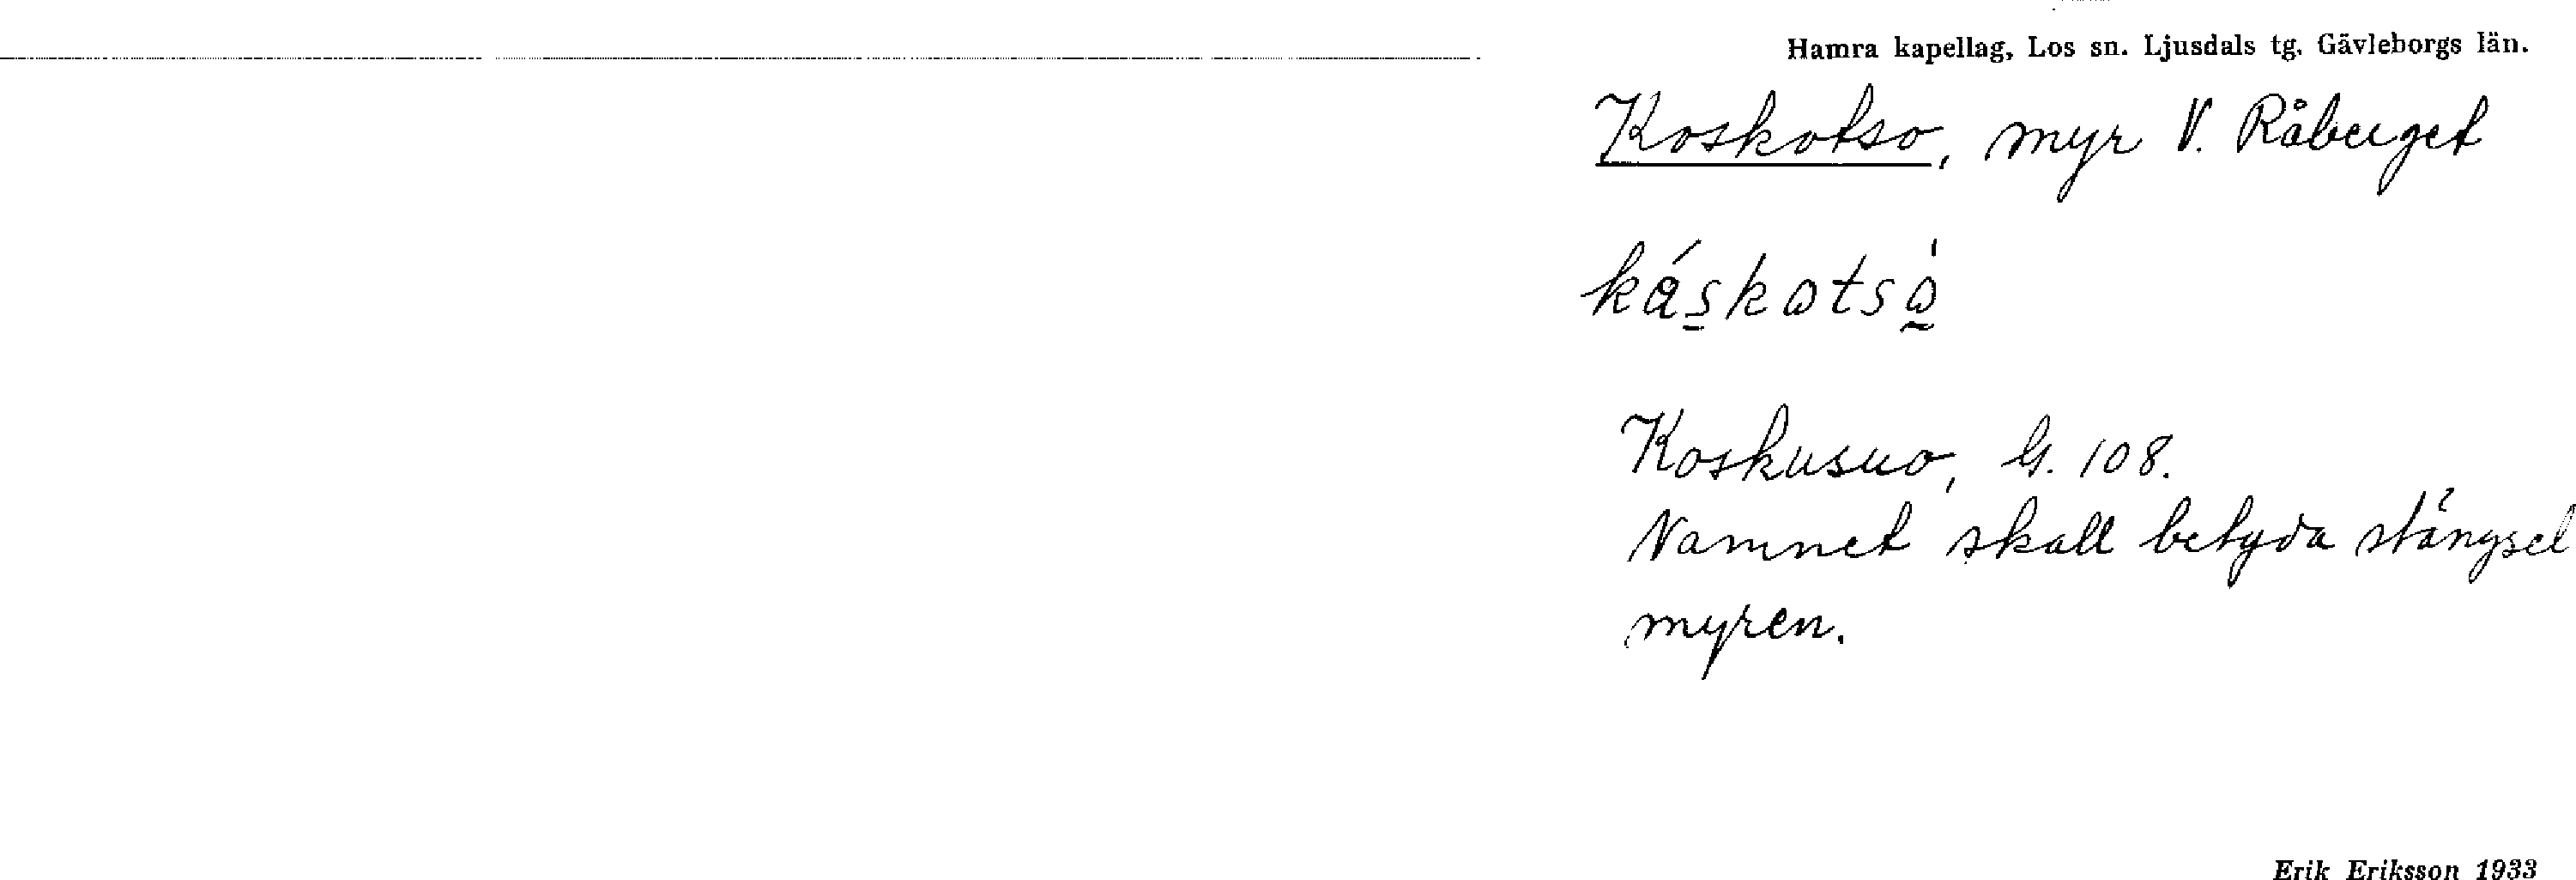 Hamra kapellag, Los sn. Ljusdals tg. Gävleborgs län.
Koskotso, myr V. Råberget
káskotsò
Koskusuo, G. 108.
Namnet skall betyda stängsel
myren.
Erik Eriksson 1933